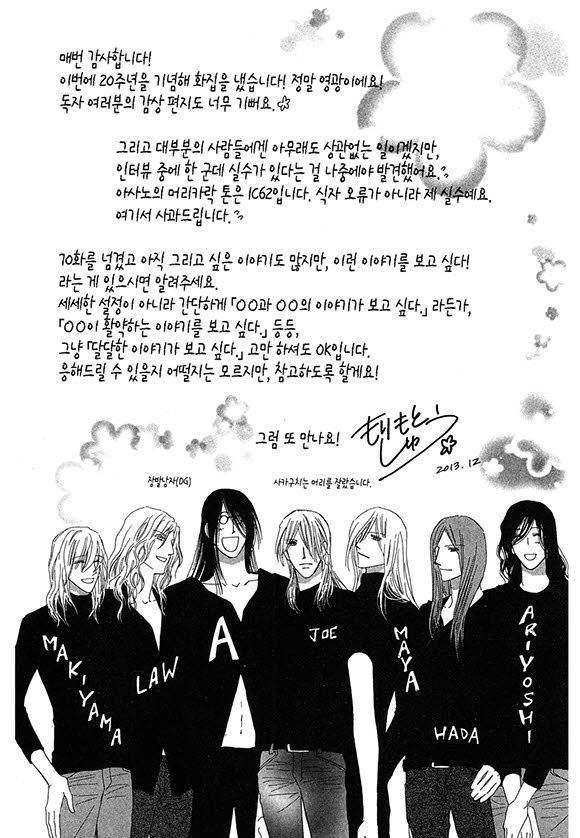 매번 감사합니다!
이번에 20주년을 기념해 화집을 냈습니다! 정말 영광이에요!
독자 여러분의 감상 편지도 너무 기뻐요.
그리고 대부분의 사람들에겐 아무래도 상관없는 일이겠지만,
인터뷰 중에 한 군데 실수가 있다는 걸 나중에야 발견했어요.
아사노의 머리카락 톤은 IC62입니다. 식자 오류가 아니라 제 실수예요.
여기서 사과드립니다.
70화를 넘겼고 아직 그리고 싶은 이야기도 많지만, 이런 이야기를 보고 싶다!
라는 게 있으시면 알려주세요.
세세한 설정이 아니라 간단하게 「○○과 ○○의 이야기가 보고 싶다.」 라든가,
「○○이 활약하는 이야기를 보고 싶다.」 등등,
그냥 「달달한 이야기가 보고 싶다.」 고만 하셔도 OK입니다.
응해드릴 수 있을지 어떨지는 모르지만, 참고하도록 할게요!
그럼 또 만나요!
2013.12
장발남자(DG)
사카구치는 머리를 잘랐습니다.
MAKIYAMA
LAW
A
JOE
MAYA
HADA
ARIYOSHI